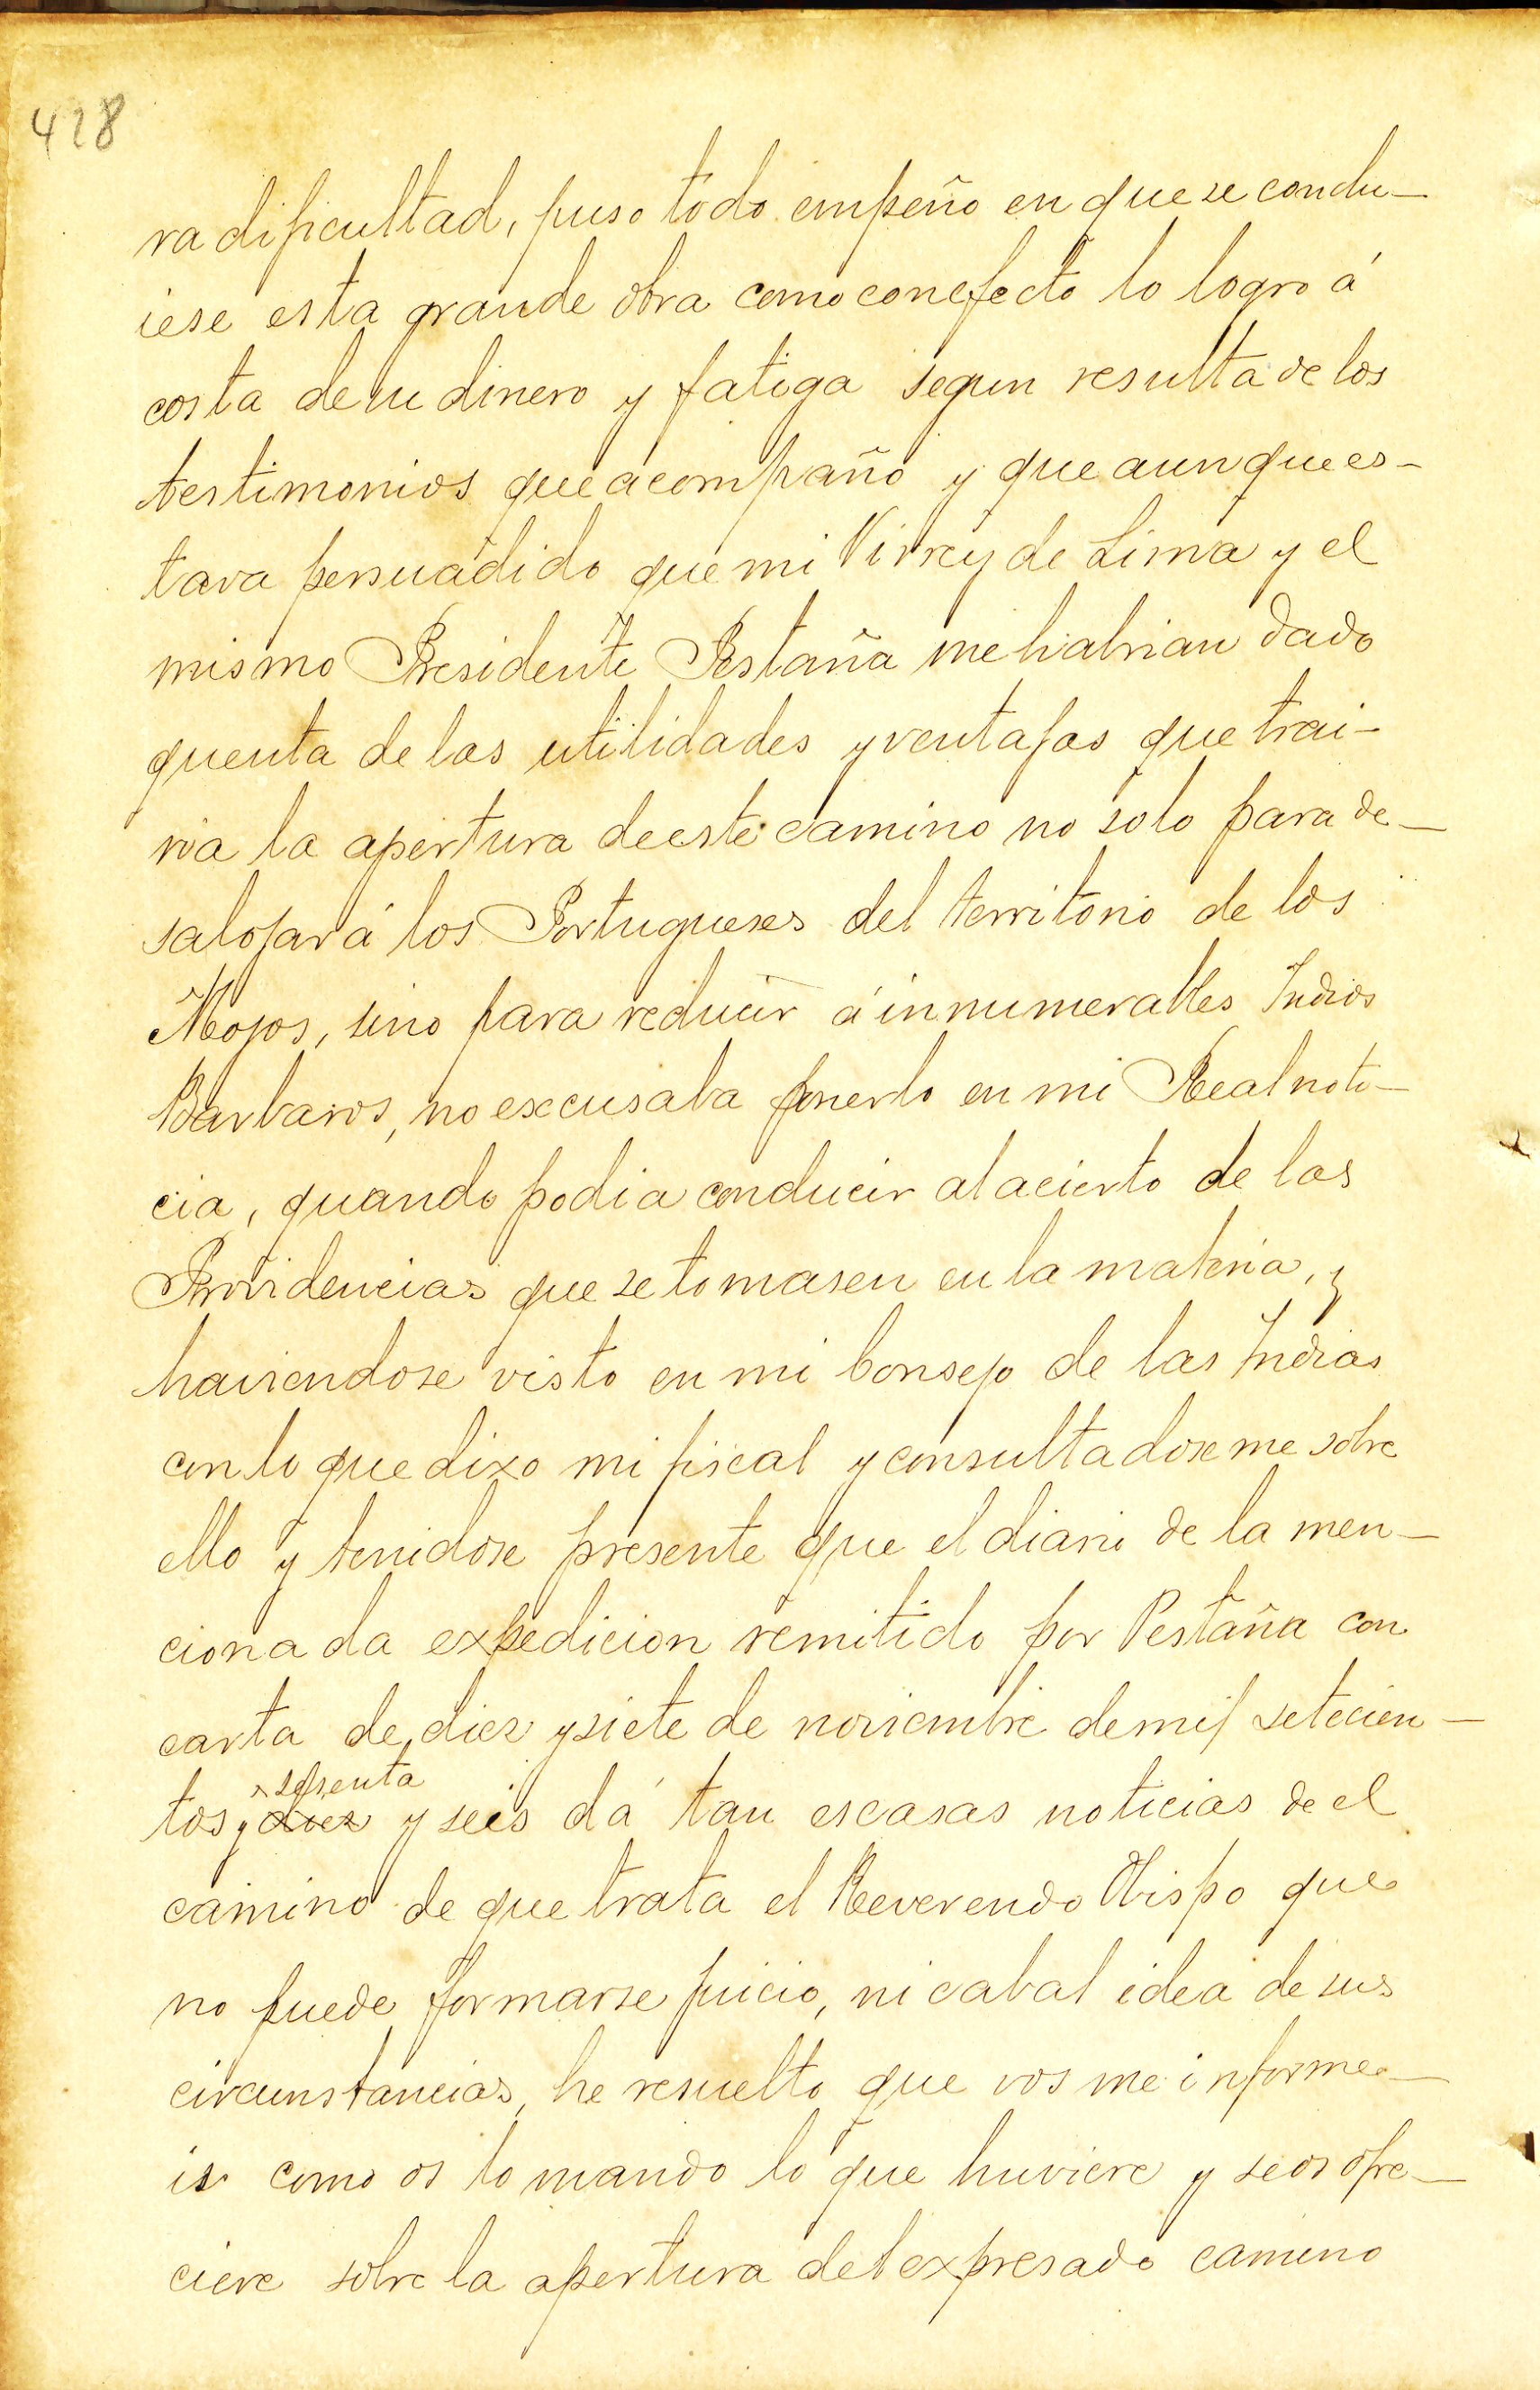 428
ra dificultad, puso todo empeño en que se condu-
iese esta grande obra como con efecto lo logro á
costa de su dinero y fatiga segun resulta de los
testimonios que acompaño y que aunque es-
tava persuadido que mi Virrey de Lima y el
mismo Presidente Pestaña me habrian dado
quenta de las utilidades y ventajas que trai-
ria la apertura de este camino no solo para de-
salojar á los Portugueses del territorio de los
Mojos, sino para reducir á innumerables Indios
Barbaros, no escusaba ponerlo en mi Real noti-
cia, quando podia conducir al acierto de las
Providencias que se tomasen en la materia, y
haviendose visto en mi Consejo de las Indias
con lo que dixo mi fiscal y consultadoseme sobre
ello y tenidose presente que el diario de la men-
cionada expedicion remitido por Pestaña con
carta de diez y siete de noviembre de mil setecien-
sesenta
tos y diez y seis dá tan escasas noticias de el
camino de que trata el Reverendo Obispo que
no puede formarse juicio, ni cabal idea de sus
circunstancias, he resuelto que vos me informe-
is como os lo mando lo que huviere y se os ofre-
ciere sobre la apertura del expresado camino